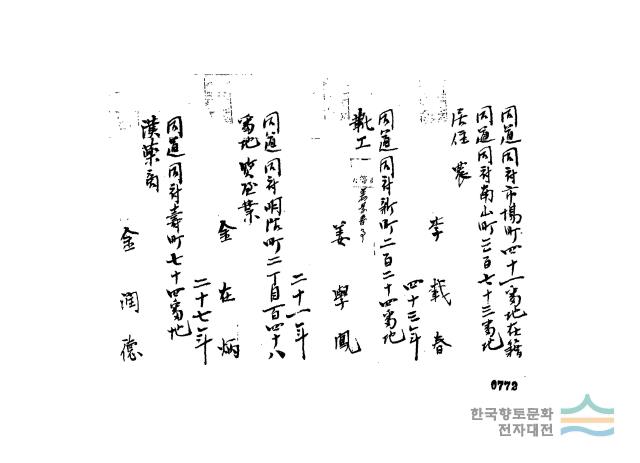 同道同府市場町四十一番地在籍
同道同府南山町三百七十三番地
居住 農
李 載 春
四十三年
同道同府新町二百二十四番地
靴工
姜 學 鳳
二十一年
同道同府明治町二丁目百四十八
番地
金 在 炳
二十七年
同道同府壽町七十四番地
漢藥商
金 潤 德
0772
한국향토문화
전자대전